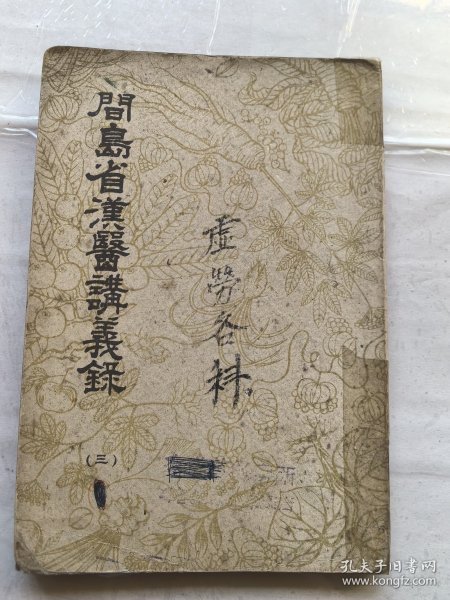 間島省漢醫講義錄
(三)
虛勞各科
孔夫子旧书网
www.kongfz.com